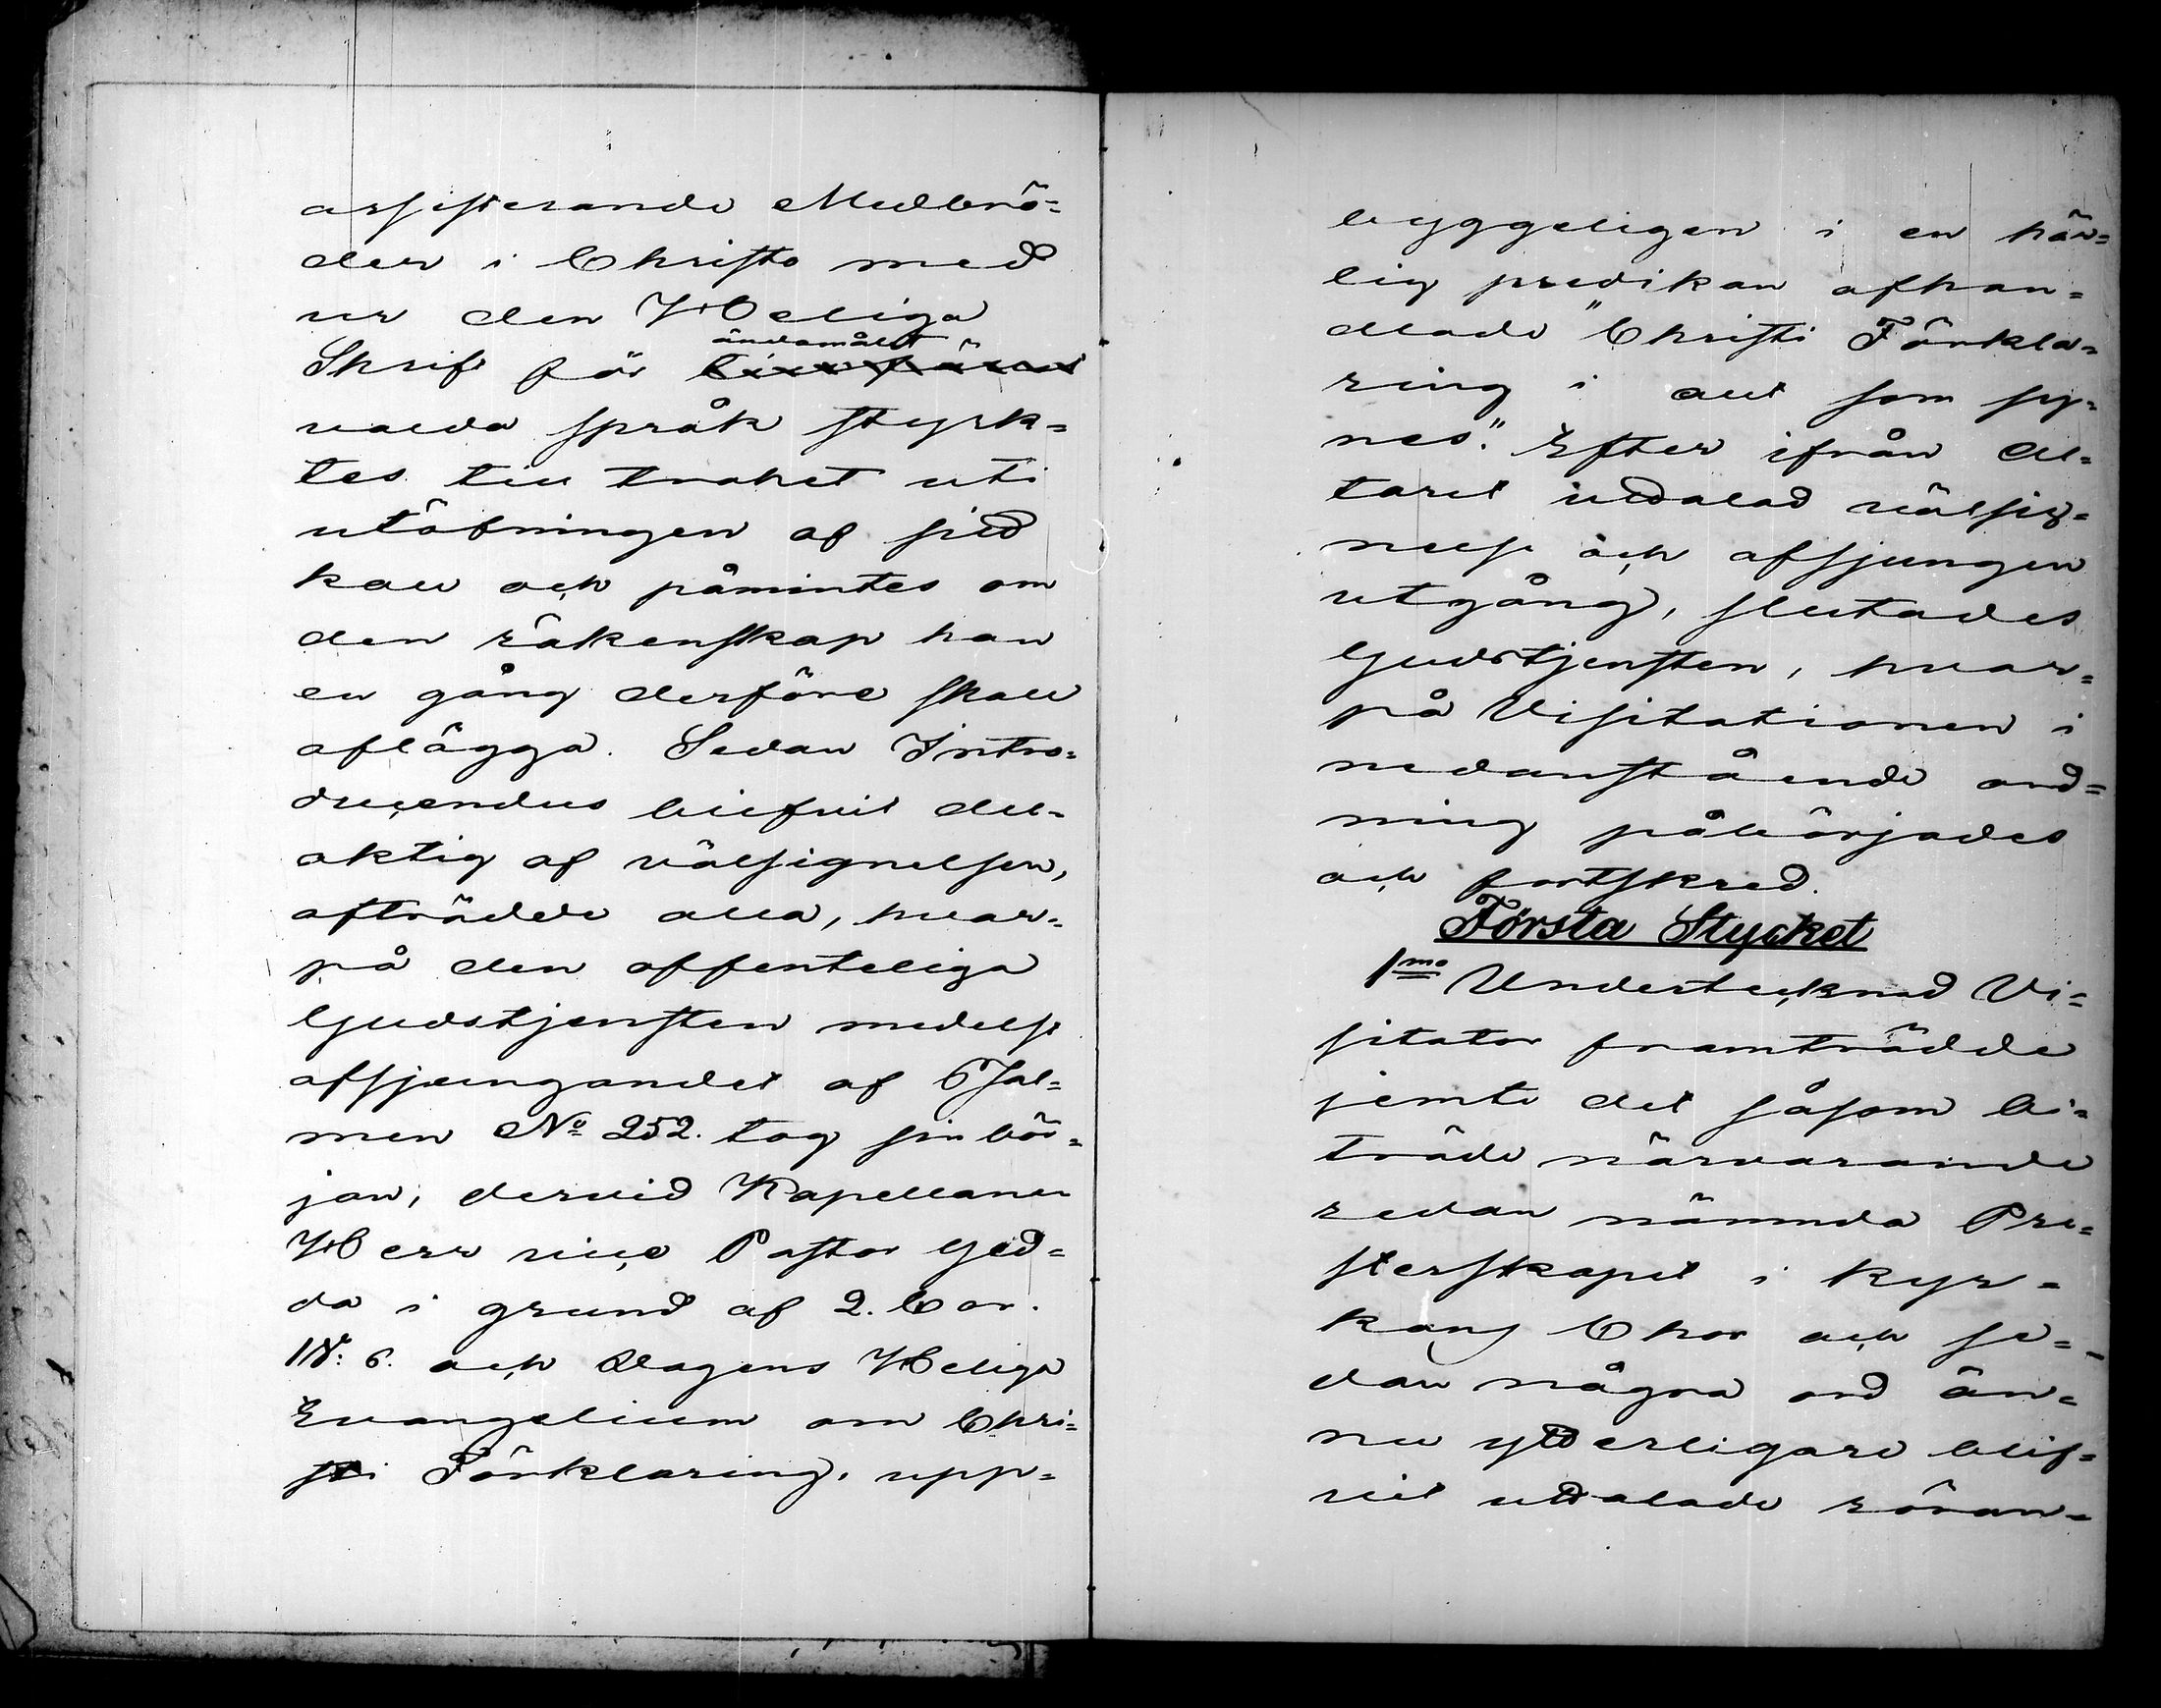 assisterande Medbrö=
der i Christo med
ur den Heliga
ändamålet
Skrift för
valda språk styrk=
tes till trohet uti
utöfningen af sitt
kall och påmintes om
den räkenskap han
en gång derföre skall
aflägga. Sedan Intro=
ducendus blifvit del=
aktig af välsignelsen,
afträdde alla, hvar=
på den offenteliga
Gudstjensten medelst
afsjungandet af Psal=
men No 252. tog sin bör=
jan, dervid Kapellanen
Herr vice Pastor Ged=
da i grund af 2. Cor.
IV: 6. och Dagens Heliga
Evangelium om Chri=
sti Förklaring, upp=
byggeligen i en här=
lig predikan afhan=
dlade "Christi Förkla=
ring i allt som sy=
nes." Efter ifrån Al=
taret uttalad välsig=
nelse och afsjungen
utgång, slutades
Gudstjensten, hvar=
på Visitationen i
nedanstående ord=
ning påbörjades
och fortskred.
Första Stycket
1mo Undertecknad Vi=
sitator framträdde
jemte det såsom bi=
träde närvarande
redan nämnda Pre=
sterskapet i kyr=
kans Chor och se=
dan några ord än=
nu ytterligare blif=
vit uttalade röran=